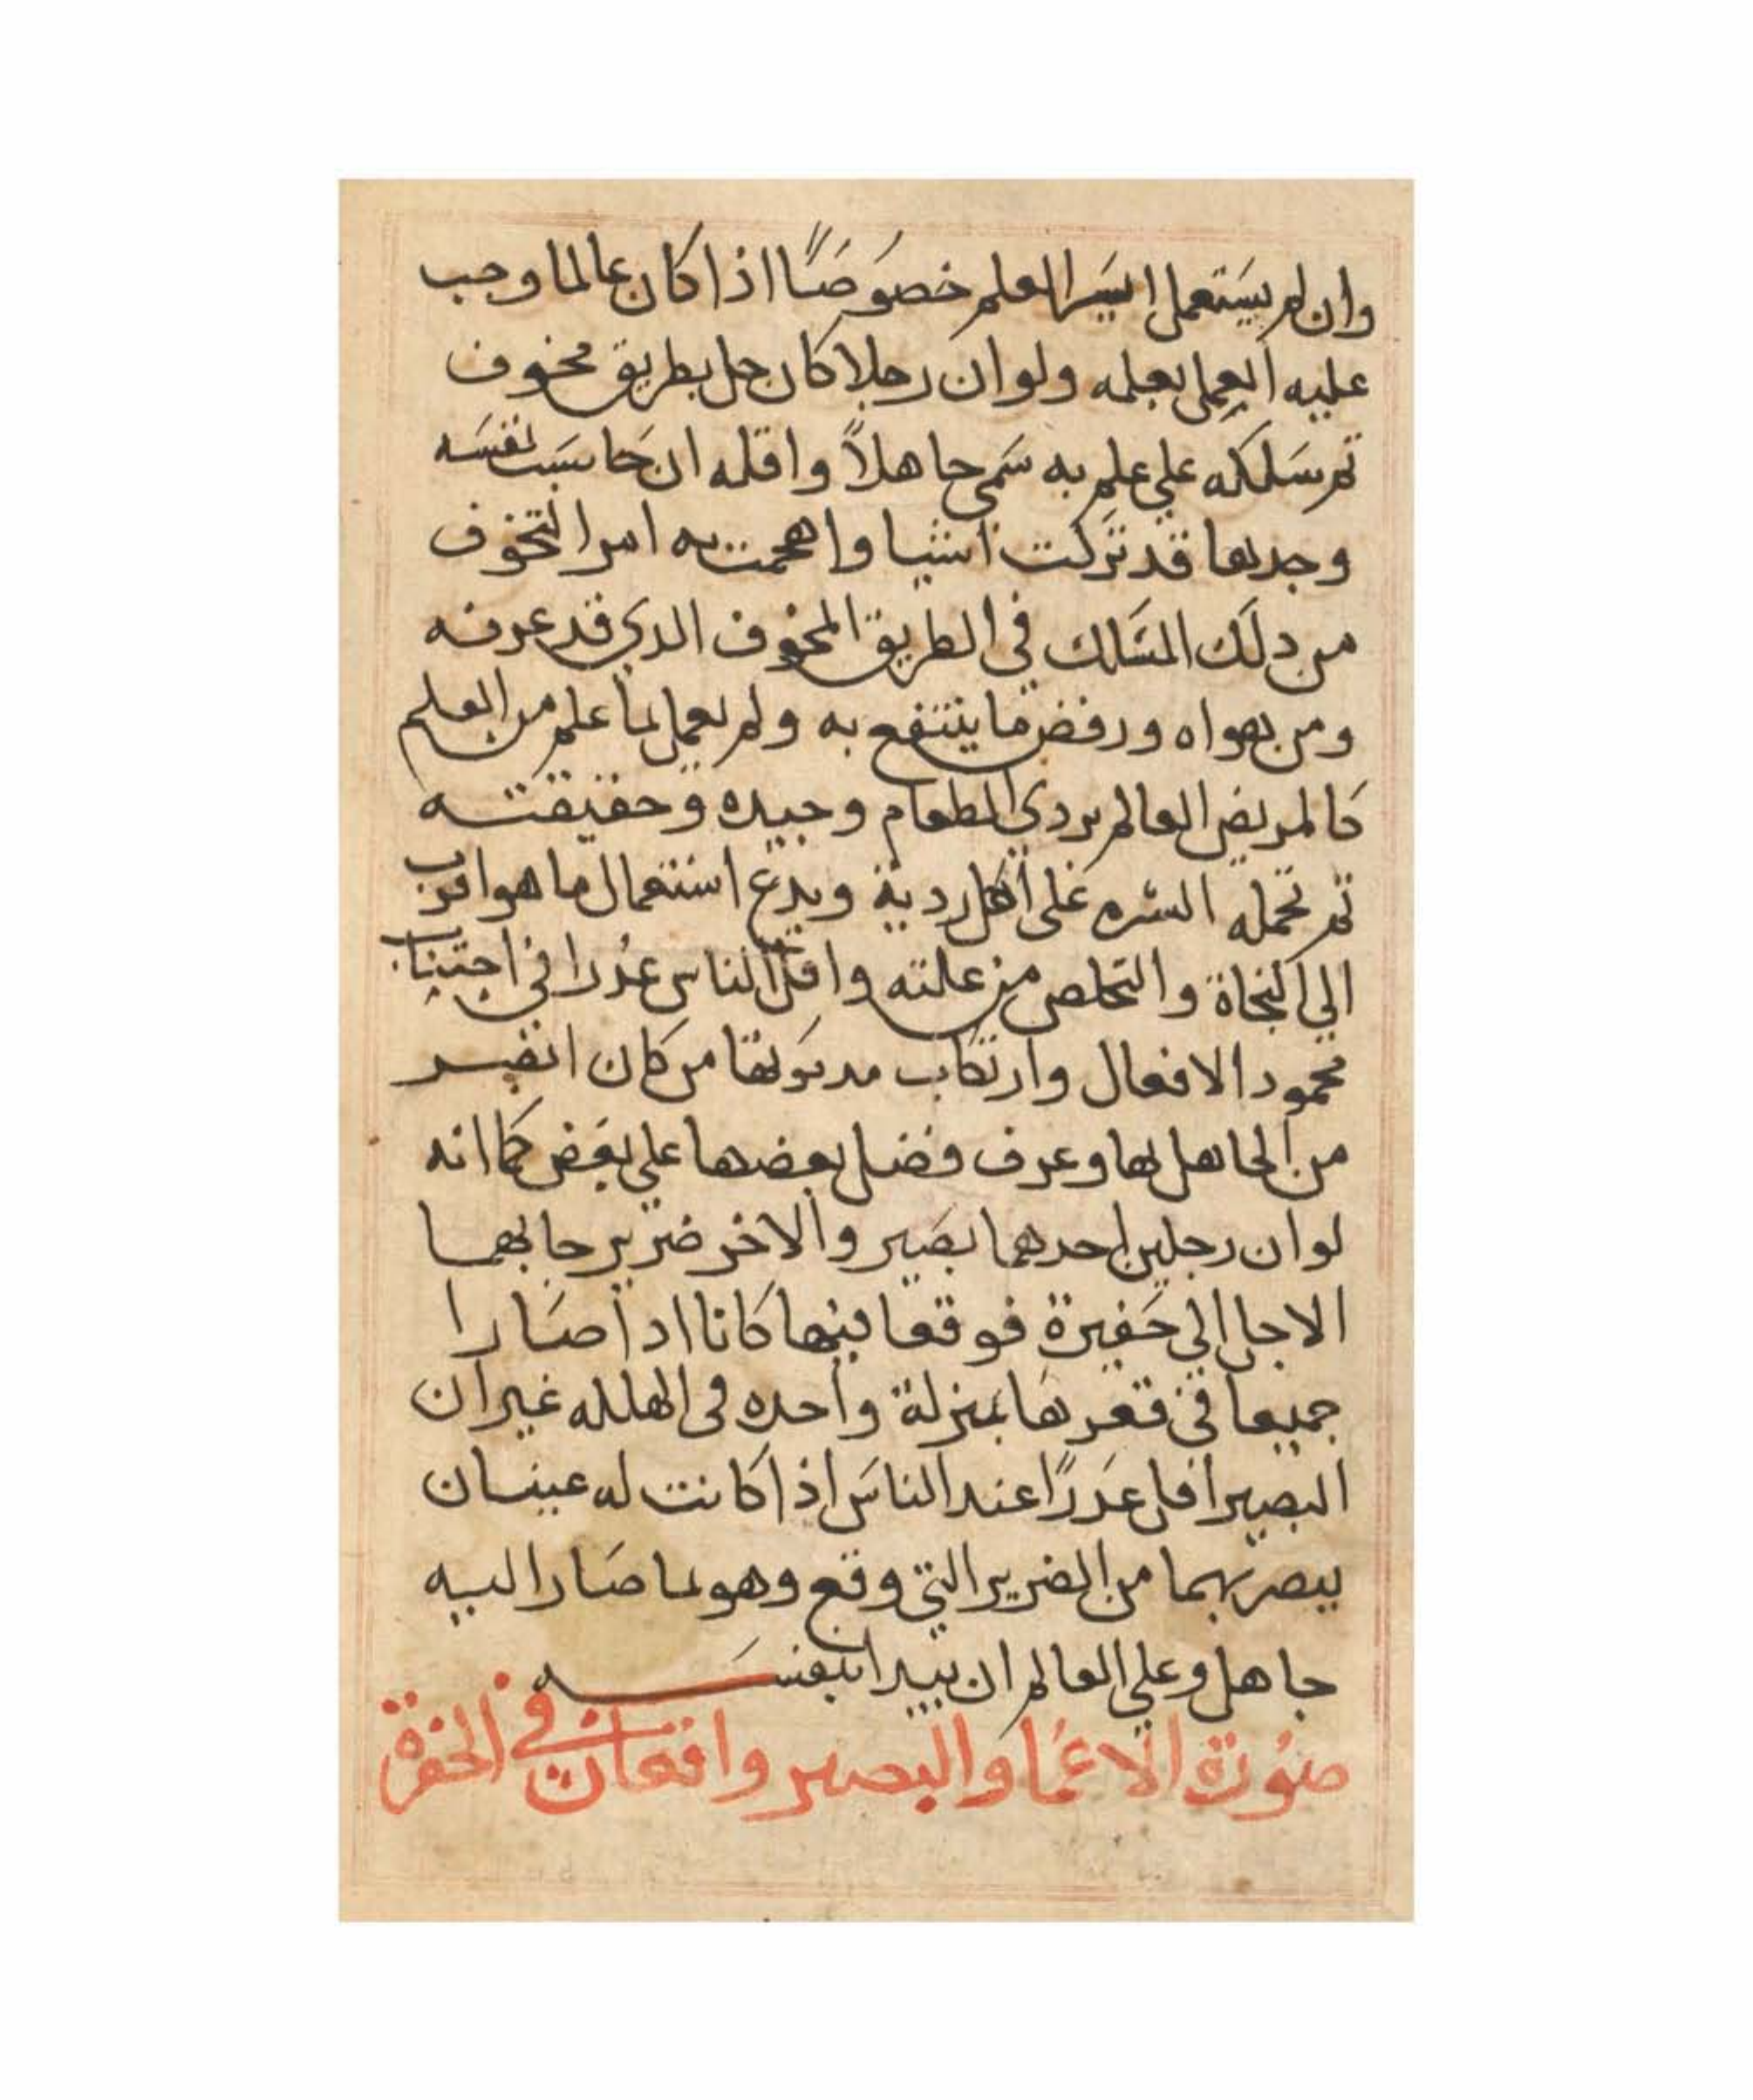 وان لم يستعمل ايسر العلم خصوصًا اذا كان عالما وجب
عليه العمل بعلمه ولو ان رجلا كان جل بطريق مخوف
ثم سلكه علي علم به سمي جاهلاً واقله ان حاسب نفسه
وجدها قد تركت اشيا واهمت به امر التخوف
من دلك المسلك في الطريق المخوف الدي قد عرفه
ومن بهواه ورفض ما ينتفع به ولم يعمل بما علم من العلم
كالمريض العالم بردي الطعام وجيده وحقيقته
ثم تحمله الشره على اكل ردية ويدع استعمال ما هو اقرب
الي النجاة والتخلص من علته واقل الناس عذرا في اجتناب
محمود الافعال وارتكاب من كان ابصر
من الجاهل بها وعرف فضل بعضها علي بعض كما انه
لو ان رجلين احدهما بصير والاخر ضرير جابهما
الاجل الي حفيرة فوقعا فيها كانا اذا صارا
جميعا في قعرها بمنزلة واحده في الهلله غير ان
البصير اقل عدرًا عند الناس اذا كانت له عينان
يبصر بهما من الضرير التي وقع وهو لما صار اليه
جاهل وعلي العالم ان يبدا بنفسه
صورة الاعما والبصير واقعان في الحفرة